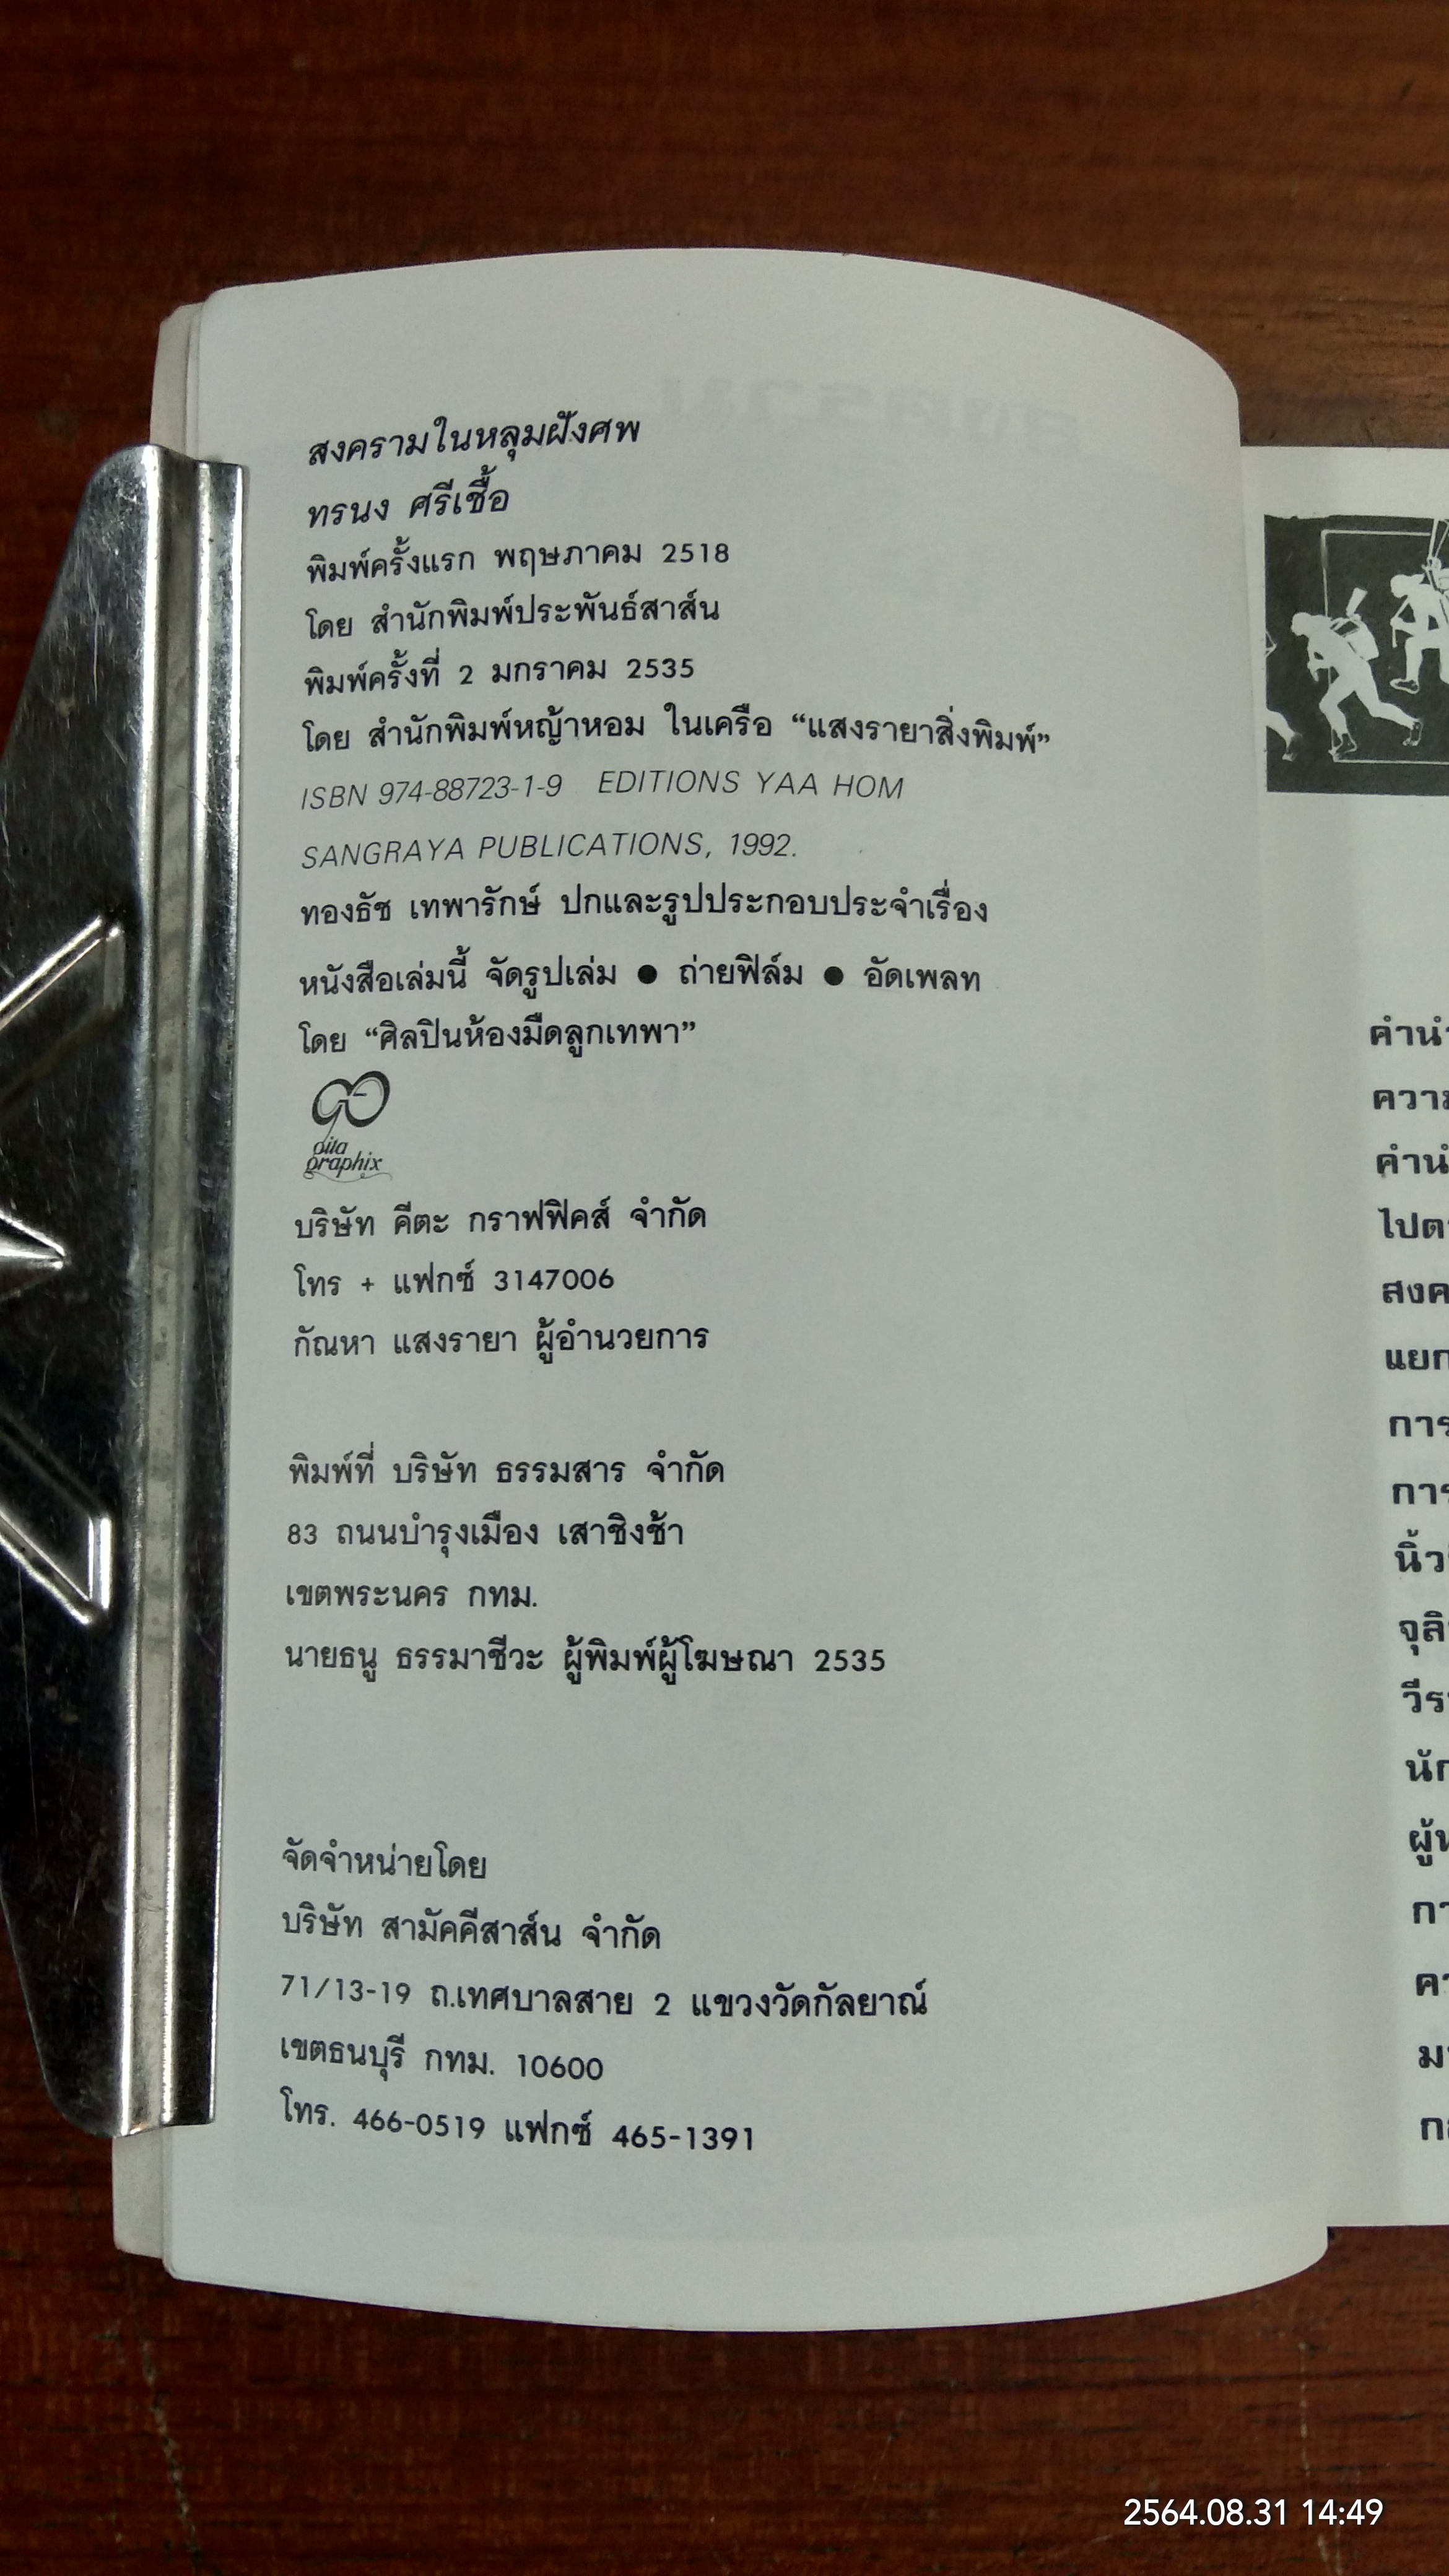 สงครามในหลุมฝังศพ
ทรนง ศรีเชื้อ
พิมพ์ครั้งแรก พฤษภาคม 2518
โดย สำนักพิมพ์ประพันธ์สาส์น
พิมพ์ครั้งที่ 2 มกราคม 2535
โดย สำนักพิมพ์หญ้าหอม ในเครือ “แสงรายาสิ่งพิมพ์”
ISBN 974-88723-1-9 EDITIONS YAA HOM
SANGRAYA PUBLICATIONS, 1992.
ทองธัช เทพารักษ์ ปกและรูปประกอบประจำเรื่อง
หนังสือเล่มนี้ จัดรูปเล่ม ● ถ่ายฟิล์ม ● อัดเพลท
โดย “ศิลปินห้องมืดลูกเทพา”
gita
graphix
บริษัท คีตะ กราฟฟิคส์ จำกัด
โทร + แฟกซ์ 3147006
กัณหา แสงรายา ผู้อำนวยการ
พิมพ์ที่ บริษัท ธรรมสาร จำกัด
83 ถนนบำรุงเมือง เสาชิงช้า
เขตพระนคร กทม.
นายธนู ธรรมาชีวะ ผู้พิมพ์ผู้โฆษณา 2535
จัดจำหน่ายโดย
บริษัท สามัคคีสาส์น จำกัด
71/13-19 ถ.เทศบาลสาย 2 แขวงวัดกัลยาณ์
เขตธนบุรี กทม. 10600
โทร. 466-0519 แฟกซ์ 465-1391
2564.08.31 14:49